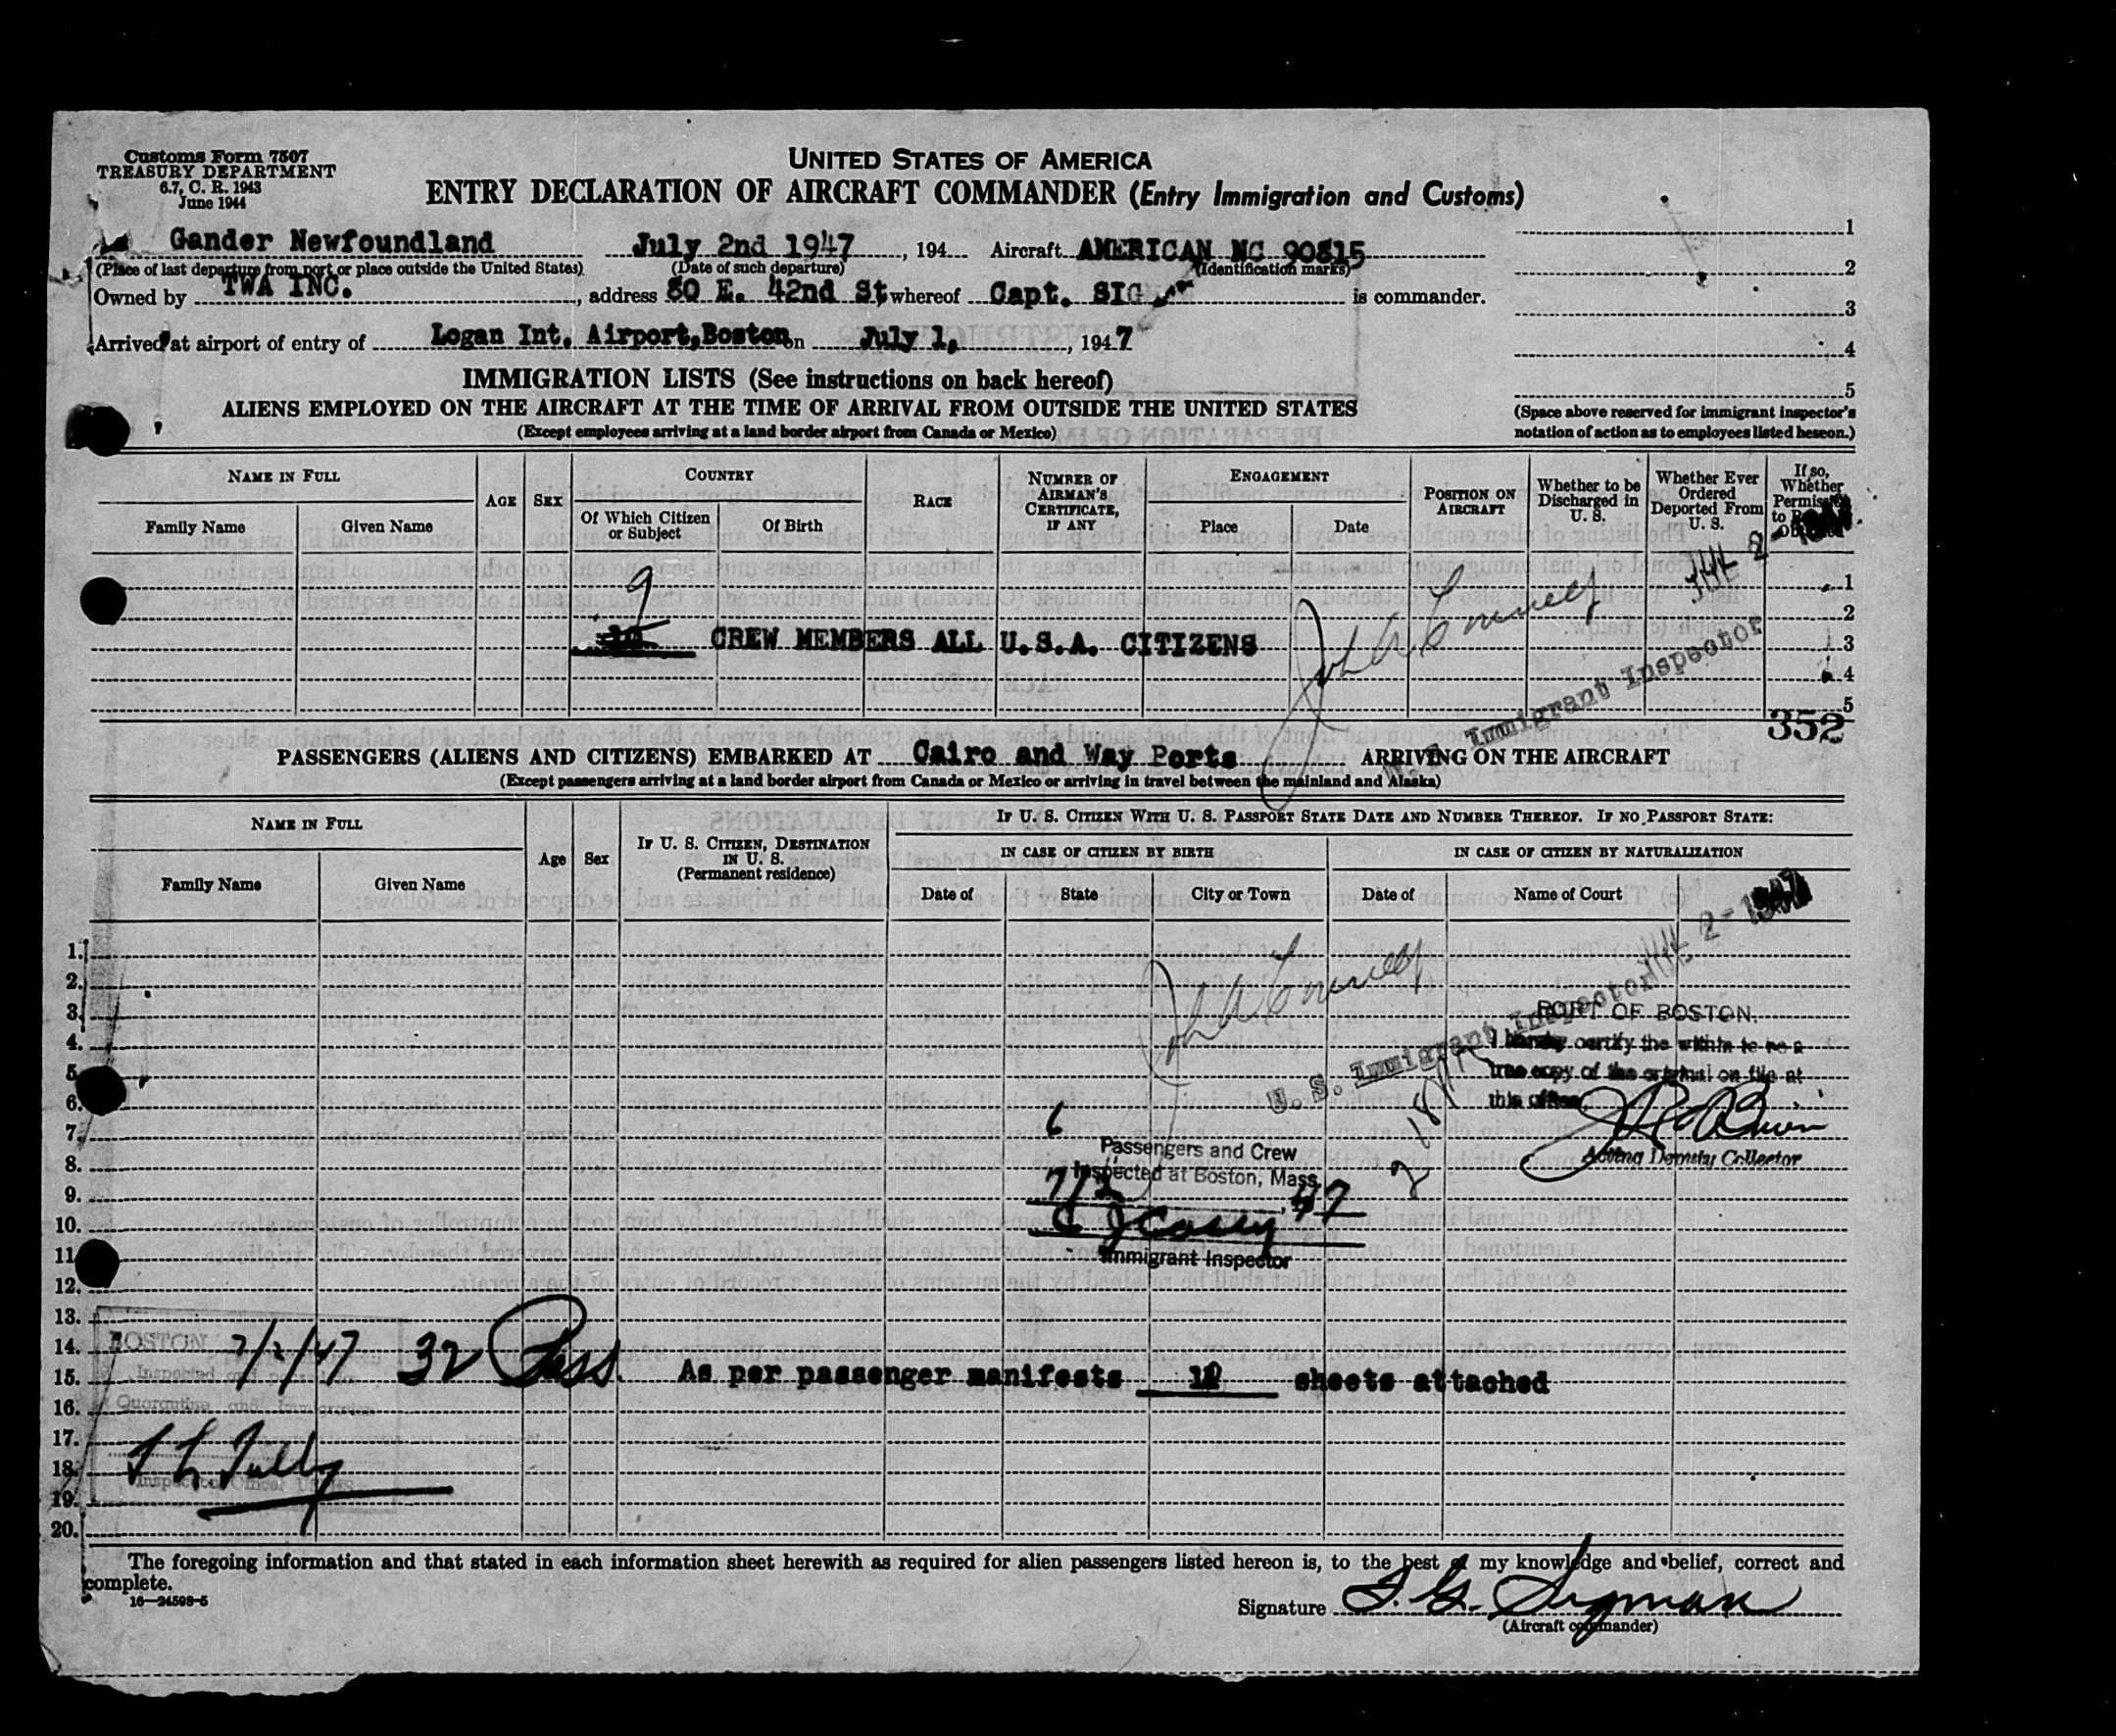 Customs Form 7507
TREASURY DEPARTMENT
6.7, C. R. 1943
June 1944
UNITED STATES OF AMERICA
ENTRY DECLARATION OF AIRCRAFT COMMANDER (Entry Immigration and Customs)
Gander Newfoundland July 2nd 1947, 194 Aircraft AMERICAN NC 90815
(Place of last departure from port or place outside the United States) (Date of such departure) (Identification marks)
Owned by TWA INC., address 60 E. 42nd St whereof Capt. SIG is commander.
Arrived at airport of entry of Logan Int. Airport, Boston on July 1, 1947
1
2
3
4
5
(Space above reserved for immigrant inspector's
notation of action as to employees listed hereon.)
IMMIGRATION LISTS (See instructions on back hereof)
ALIENS EMPLOYED ON THE AIRCRAFT AT THE TIME OF ARRIVAL FROM OUTSIDE THE UNITED STATES
(Except employees arriving at a land border airport from Canada or Mexico)
NAME IN FULL
Family Name Given Name
AGE SEX
COUNTRY
Of Which Citizen or Subject Of Birth
RACE
NUMBER OF AIRMAN'S CERTIFICATE, IF ANY
ENGAGEMENT
Place Date
POSITION ON AIRCRAFT
Whether to be Discharged in U. S.
Whether Ever Ordered Deported From U. S.
If so, Whether
9
CREW MEMBERS ALL U.S.A. CITIZENS
Immigrant Inspector
1
2
3
4
5
352
PASSENGERS (ALIENS AND CITIZENS) EMBARKED AT Cairo and Way Ports ARRIVING ON THE AIRCRAFT
(Except passengers arriving at a land border airport from Canada or Mexico or arriving in travel between the mainland and Alaska)
NAME IN FULL
Family Name Given Name
Age Sex
IF U. S. CITIZEN, DESTINATION IN U. S.
(Permanent residence)
IF U. S. CITIZEN WITH U. S. PASSPORT STATE DATE AND NUMBER THEREOF. IF NO PASSPORT STATE:
IN CASE OF CITIZEN BY BIRTH IN CASE OF CITIZEN BY NATURALIZATION
Date of State City or Town Date of Name of Court
1.
2.
3.
4.
5.
6.
7.
8.
9.
10.
11.
12.
13.
14.
15.
16.
17.
18.
19.
20.
U. S. Immigrant Inspector
PORT OF BOSTON.
certify the within to be a
true copy of the original on file at
this office.
Acting Deputy Collector
Passengers and Crew
Inspected at Boston, Mass.
7/2 47
C J Casey
Immigrant Inspector
BOSTON
7/2/47 32 Pass.
As per passenger manifests 12 sheets attached
The foregoing information and that stated in each information sheet herewith as required for alien passengers listed hereon is, to the best of my knowledge and belief, correct and
complete.
16—24598-5
Signature
(Aircraft commander)